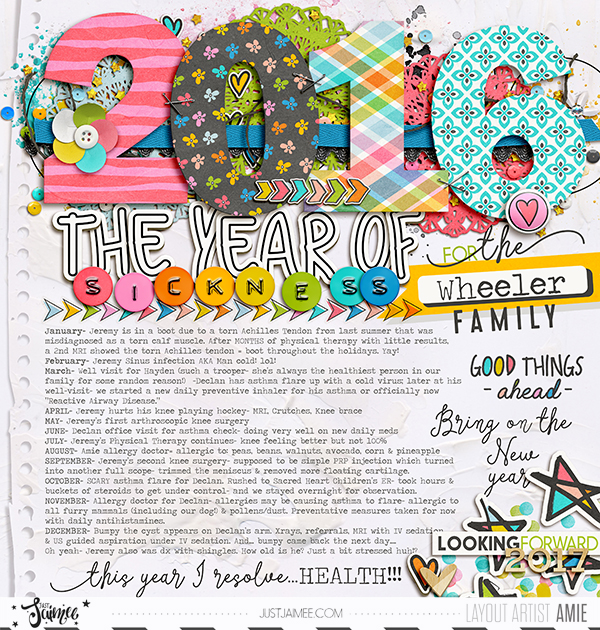 2016
THE YEAR OF
SICKNESS
FOR the
wheeler
FAMILY
January- Jeremy is in a boot due to a torn Achilles Tendon from last summer that was
misdiagnosed as a torn calf muscle. After MONTHS of physical therapy with little results,
a 2nd MRI showed the torn Achilles tendon = boot throughout the holidays. Yay!
February- Jeremy Sinus infection AKA Man cold! lol!
March- Well visit for Hayden (such a trooper- she's always the healthiest person in our
family for some reason!) -Declan has asthma flare up with a cold virus; later at his
well-visit- we started a new daily preventive inhaler for his asthma or officially now
"Reactive Airway Disease."
APRIL- Jeremy hurts his knee playing hockey- MRI, Crutches, Knee brace
MAY- Jeremy's first arthroscopic knee surgery
JUNE- Declan office visit for asthma check- doing very well on new daily meds
JULY- Jeremy's Physical Therapy continues- knee feeling better but not 100%
AUGUST- Amie allergy doctor- allergic to: peas, beans, walnuts, avocado, corn & pineapple
SEPTEMBER- Jeremy's second knee surgery- supposed to be simple PRP injection which turned
into another full scope- trimmed the meniscus & removed more floating cartilage.
OCTOBER- SCARY asthma flare for Declan. Rushed to Sacred Heart Children's ER- took hours &
buckets of steroids to get under control- and we stayed overnight for observation.
NOVEMBER- Allergy doctor for Declan- allergies may be causing asthma to flare- allergic to
all furry mammals (including our dog!) & pollens/dust. Preventative measures taken for now
with daily antihistamines.
DECEMBER- Bumpy the cyst appears on Declan's arm. Xrays, referrals, MRI with IV sedation
& US guided aspiration under IV sedation. And... bumpy came back the next day....
Oh yeah- Jeremy also was dx with shingles. How old is he? Just a bit stressed huh!?
GOOD THINGS
- ahead -
Bring on the
New
year
LOOKING FORWARD
2017
this year I resolve...HEALTH!!!
JUST Jaimee
JUSTJAIMEE.COM
LAYOUT ARTIST AMIE